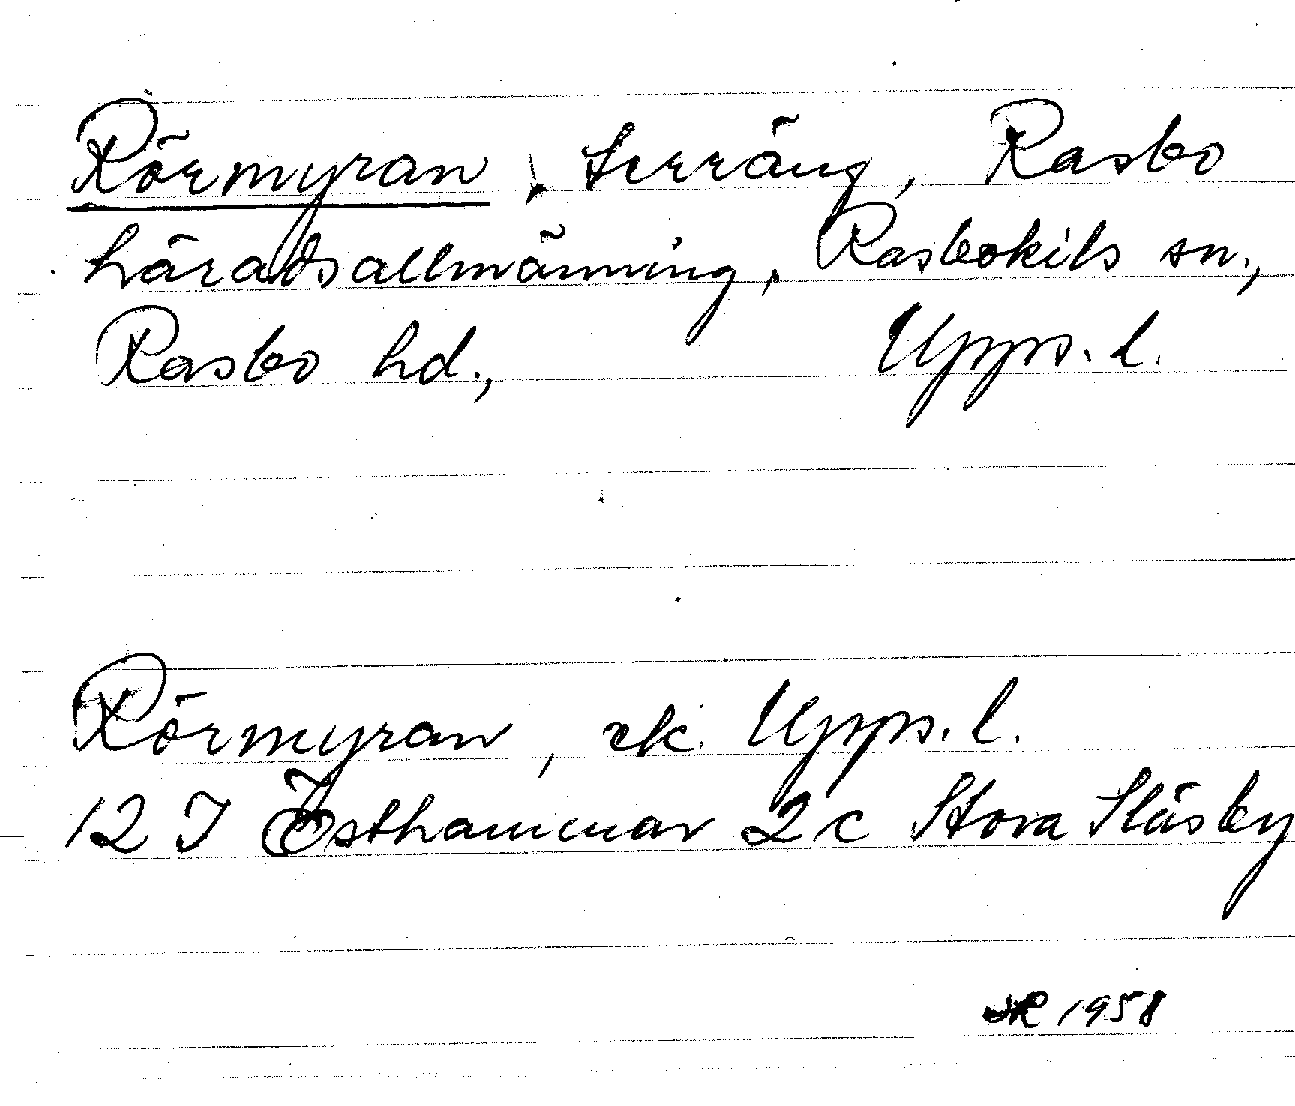 Rörmyran, terräng, Rasbo
häradsallmänning, Rasbokils sn.,
Rasbo hd., Upps. l.
Rörmyran, ek. Upps. l.
12 I Östhammar 2 c Stora Ståsby
1958